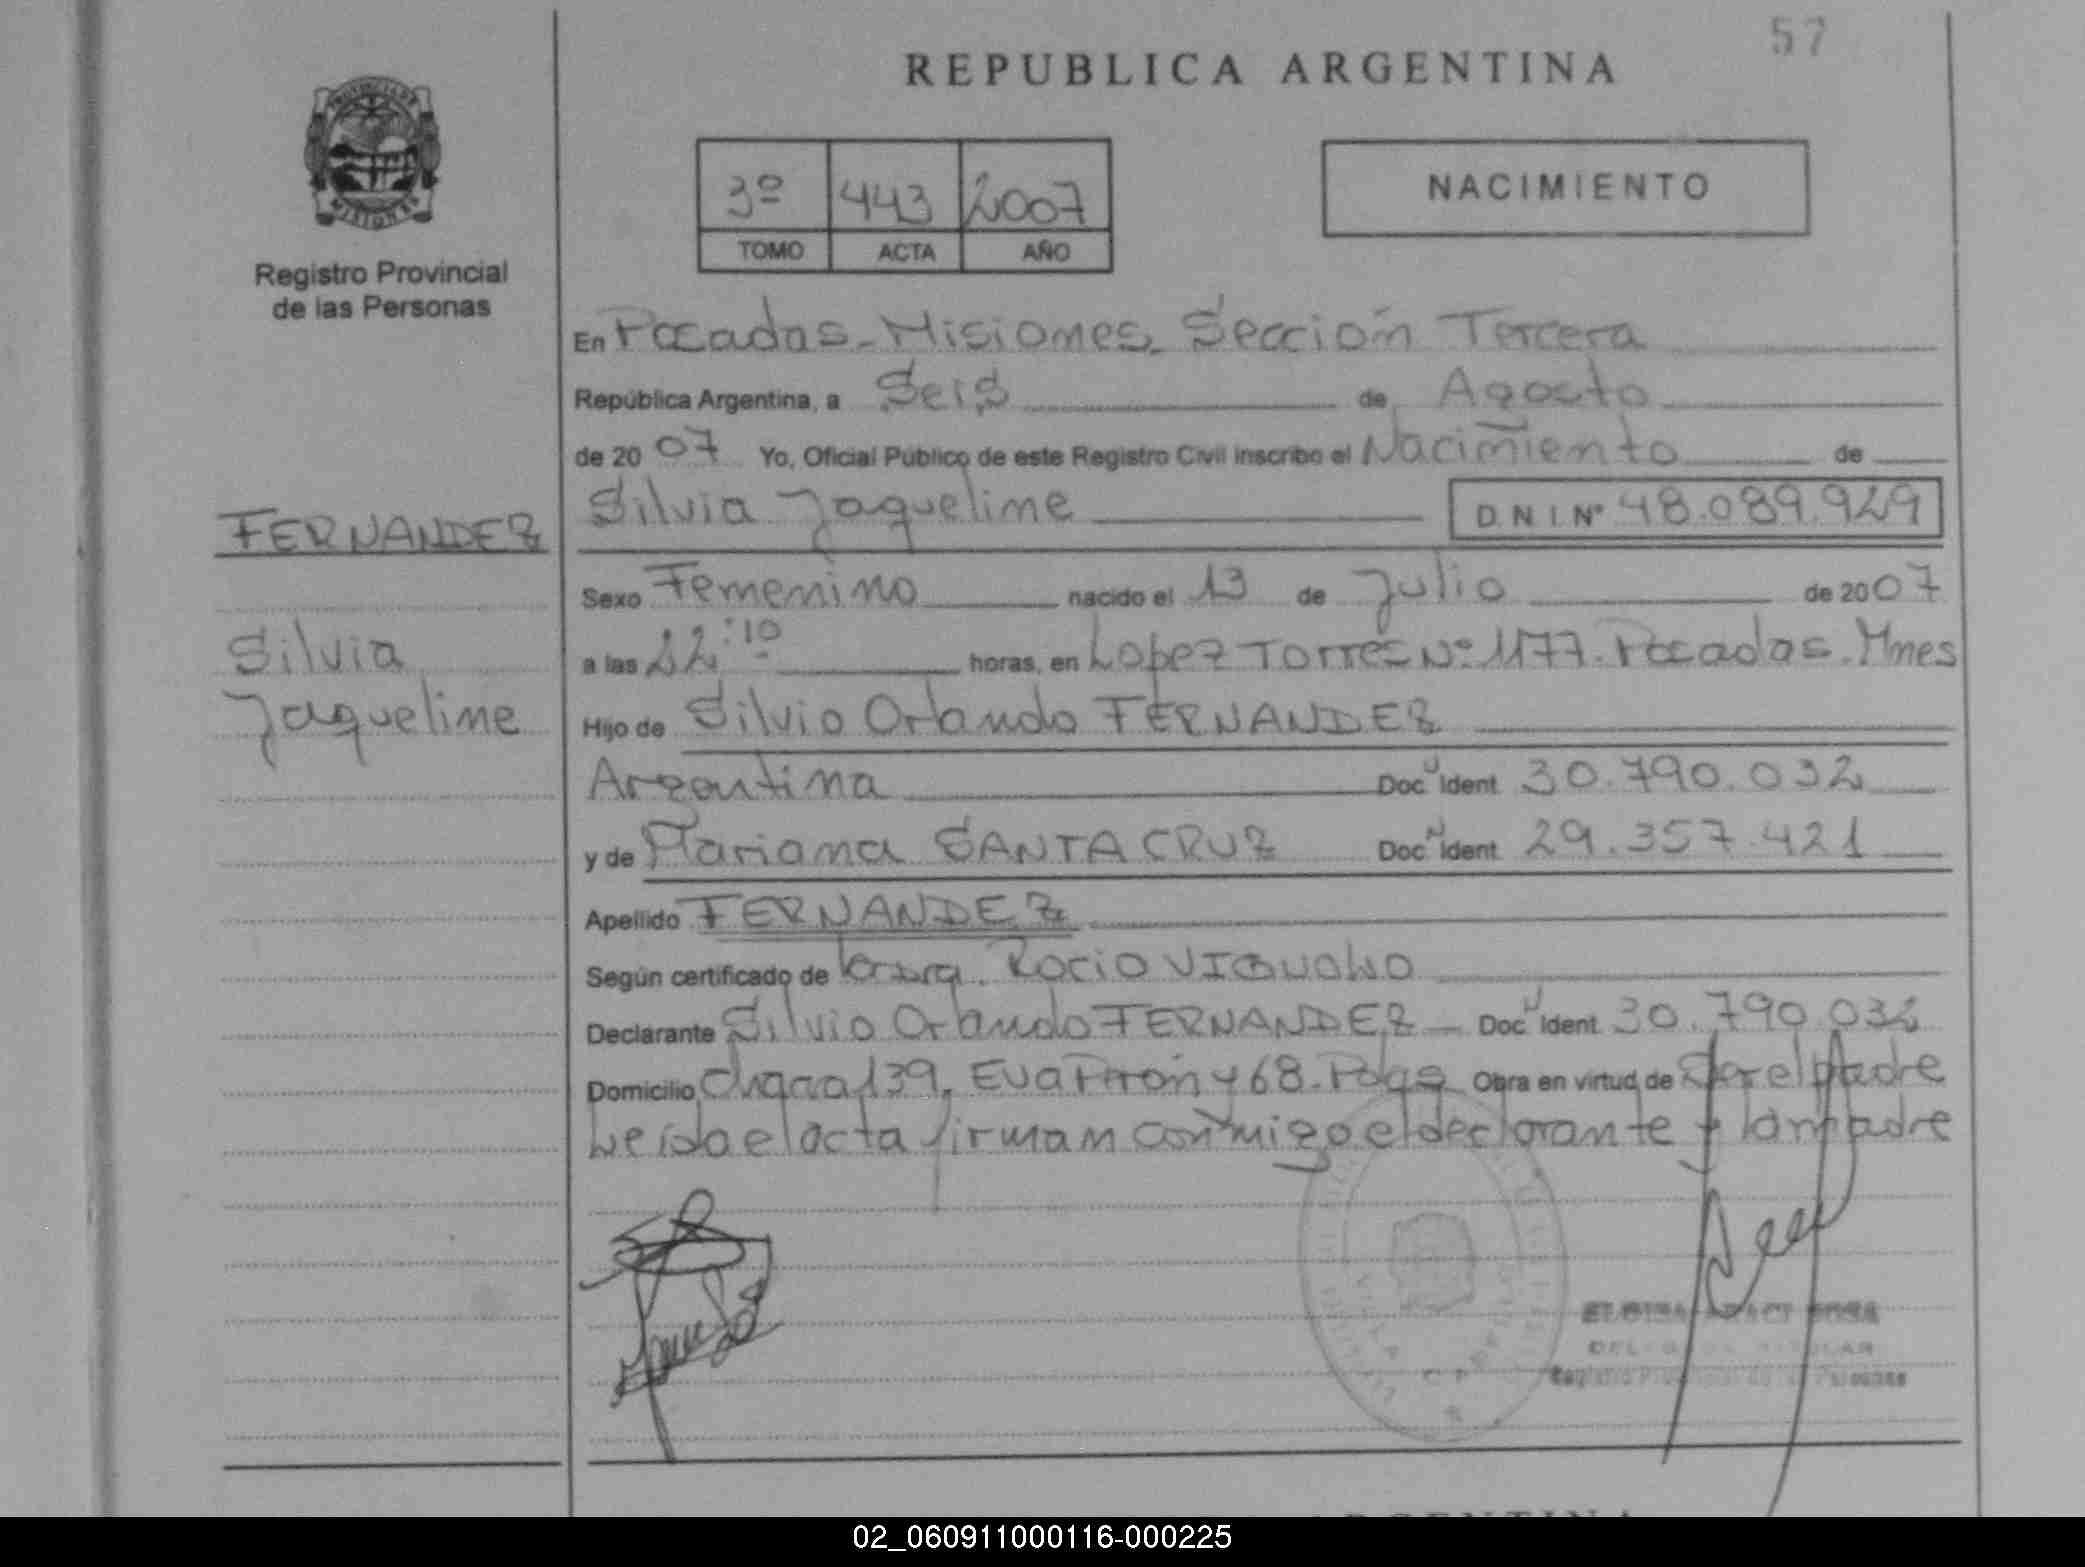 57
REPUBLICA ARGENTINA
PROVINCIA DE
MISIONES
Registro Provincial
de las Personas
3º 443 2007
TOMO ACTA AÑO
NACIMIENTO
En Posadas - Misiones - Sección Tercera
República Argentina, a Seis de Agosto
de 2007 Yo, Oficial Público de este Registro Civil inscribo el Nacimiento de
FERNANDEZ
Silvia Jaqueline
Silvia Jaqueline D.N.I. Nº 48.089.929
Sexo Femenino nacido el 13 de Julio de 2007
a las 22:10 horas, en Lopez Torres Nº 1177. Posadas. Mnes
Hijo de Silvio Orlando FERNANDEZ
Argentina Doc Ident 30.790.032
y de Mariana SANTACRUZ Doc Ident 29.357.421
Apellido FERNANDEZ
Según certificado de Rocio
Declarante Silvio Orlando FERNANDEZ Doc Ident 30.790.032
Domicilio Chacra 139, Eva Perón y 68. Pdas Obra en virtud de Ser el padre
Leida el acta firman conmigo el declarante y la madre
Registro Provincial de las Personas
ARGENTINA
02_060911000116-000225